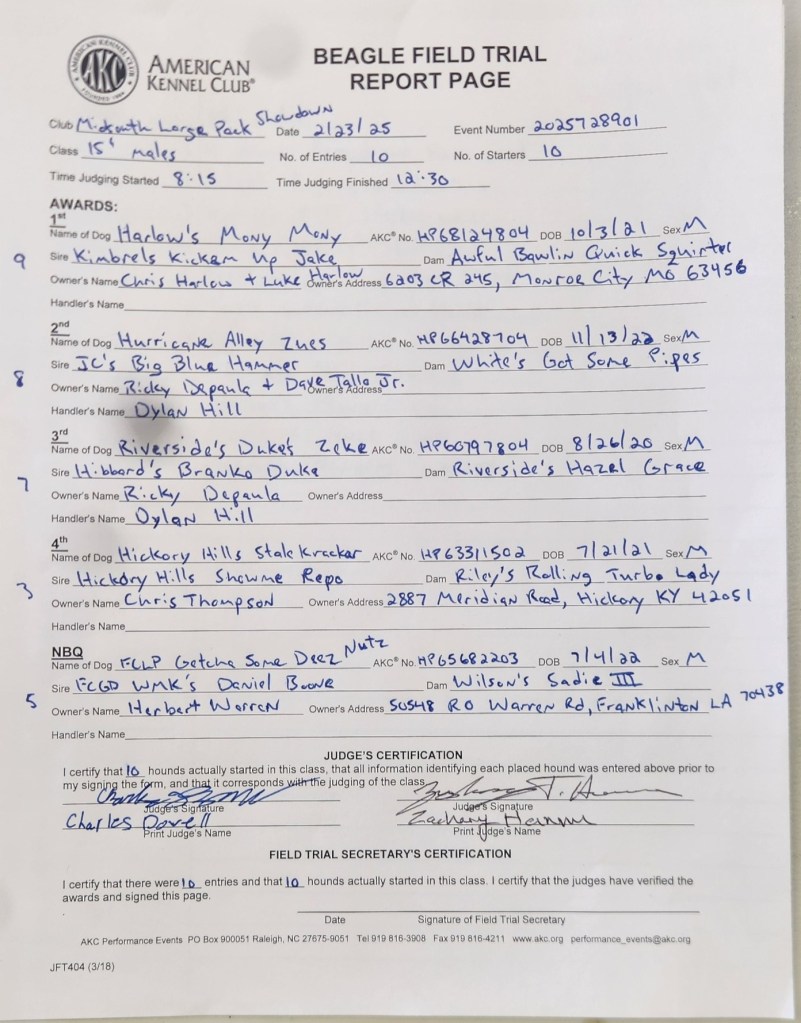 AMERICAN KENNEL CLUB
AKC
FOUNDED 1884
AMERICAN
KENNEL CLUB®
BEAGLE FIELD TRIAL
REPORT PAGE
Club Midsouth Large Pack Showdown Date 2/23/25 Event Number 2025728901
Class 15" males No. of Entries 10 No. of Starters 10
Time Judging Started 8:15 Time Judging Finished 12:30
AWARDS:
1st
Name of Dog Harlow's Mony Mony AKC® No. HP68124804 DOB 10/3/21 Sex M
9 Sire Kimbrels Kickem Up Jake Dam Awful Bawlin Quick Squirter
Owner's Name Chris Harlow + Luke Harlow Owner's Address 6203 CR 245, Monroe City MO 63456
Handler's Name
2nd
Name of Dog Hurricane Alley Zues AKC® No. HP66428704 DOB 11/13/22 Sex M
Sire JC's Big Blue Hammer Dam White's Got Some Pipes
8 Owner's Name Ricky Depaula + Dave Tallo Jr. Owner's Address
Handler's Name Dylan Hill
3rd
Name of Dog Riverside's Duke's Zeke AKC® No. HP60797804 DOB 8/26/20 Sex M
Sire Hibbard's Branko Duke Dam Riverside's Hazel Grace
7 Owner's Name Ricky Depaula Owner's Address
Handler's Name Dylan Hill
4th
Name of Dog Hickory Hills Stale Kracker AKC® No. HP63311502 DOB 7/21/21 Sex M
Sire Hickory Hills Showme Repo Dam Riley's Rolling Turbo Lady
3 Owner's Name Chris Thompson Owner's Address 2887 Meridian Road, Hickory KY 42051
Handler's Name
NBQ
Name of Dog FCLP Getcha Some Deez Nutz AKC® No. HP65682203 DOB 7/4/22 Sex M
Sire FCGD WMK's Daniel Boone Dam Wilson's Sadie III
5 Owner's Name Herbert Warren Owner's Address 50548 RO Warren Rd, Franklinton LA 70438
Handler's Name
JUDGE'S CERTIFICATION
I certify that 10 hounds actually started in this class, that all information identifying each placed hound was entered above prior to
my signing the form, and that it corresponds with the judging of the class.
Judge's Signature Judge's Signature
Charles Zachary
Print Judge's Name Print Judge's Name
FIELD TRIAL SECRETARY'S CERTIFICATION
I certify that there were 10 entries and that 10 hounds actually started in this class. I certify that the judges have verified the
awards and signed this page.
Date Signature of Field Trial Secretary
AKC Performance Events PO Box 900051 Raleigh, NC 27675-9051 Tel 919 816-3908 Fax 919 816-4211 www.akc.org performance_events@akc.org
JFT404 (3/18)